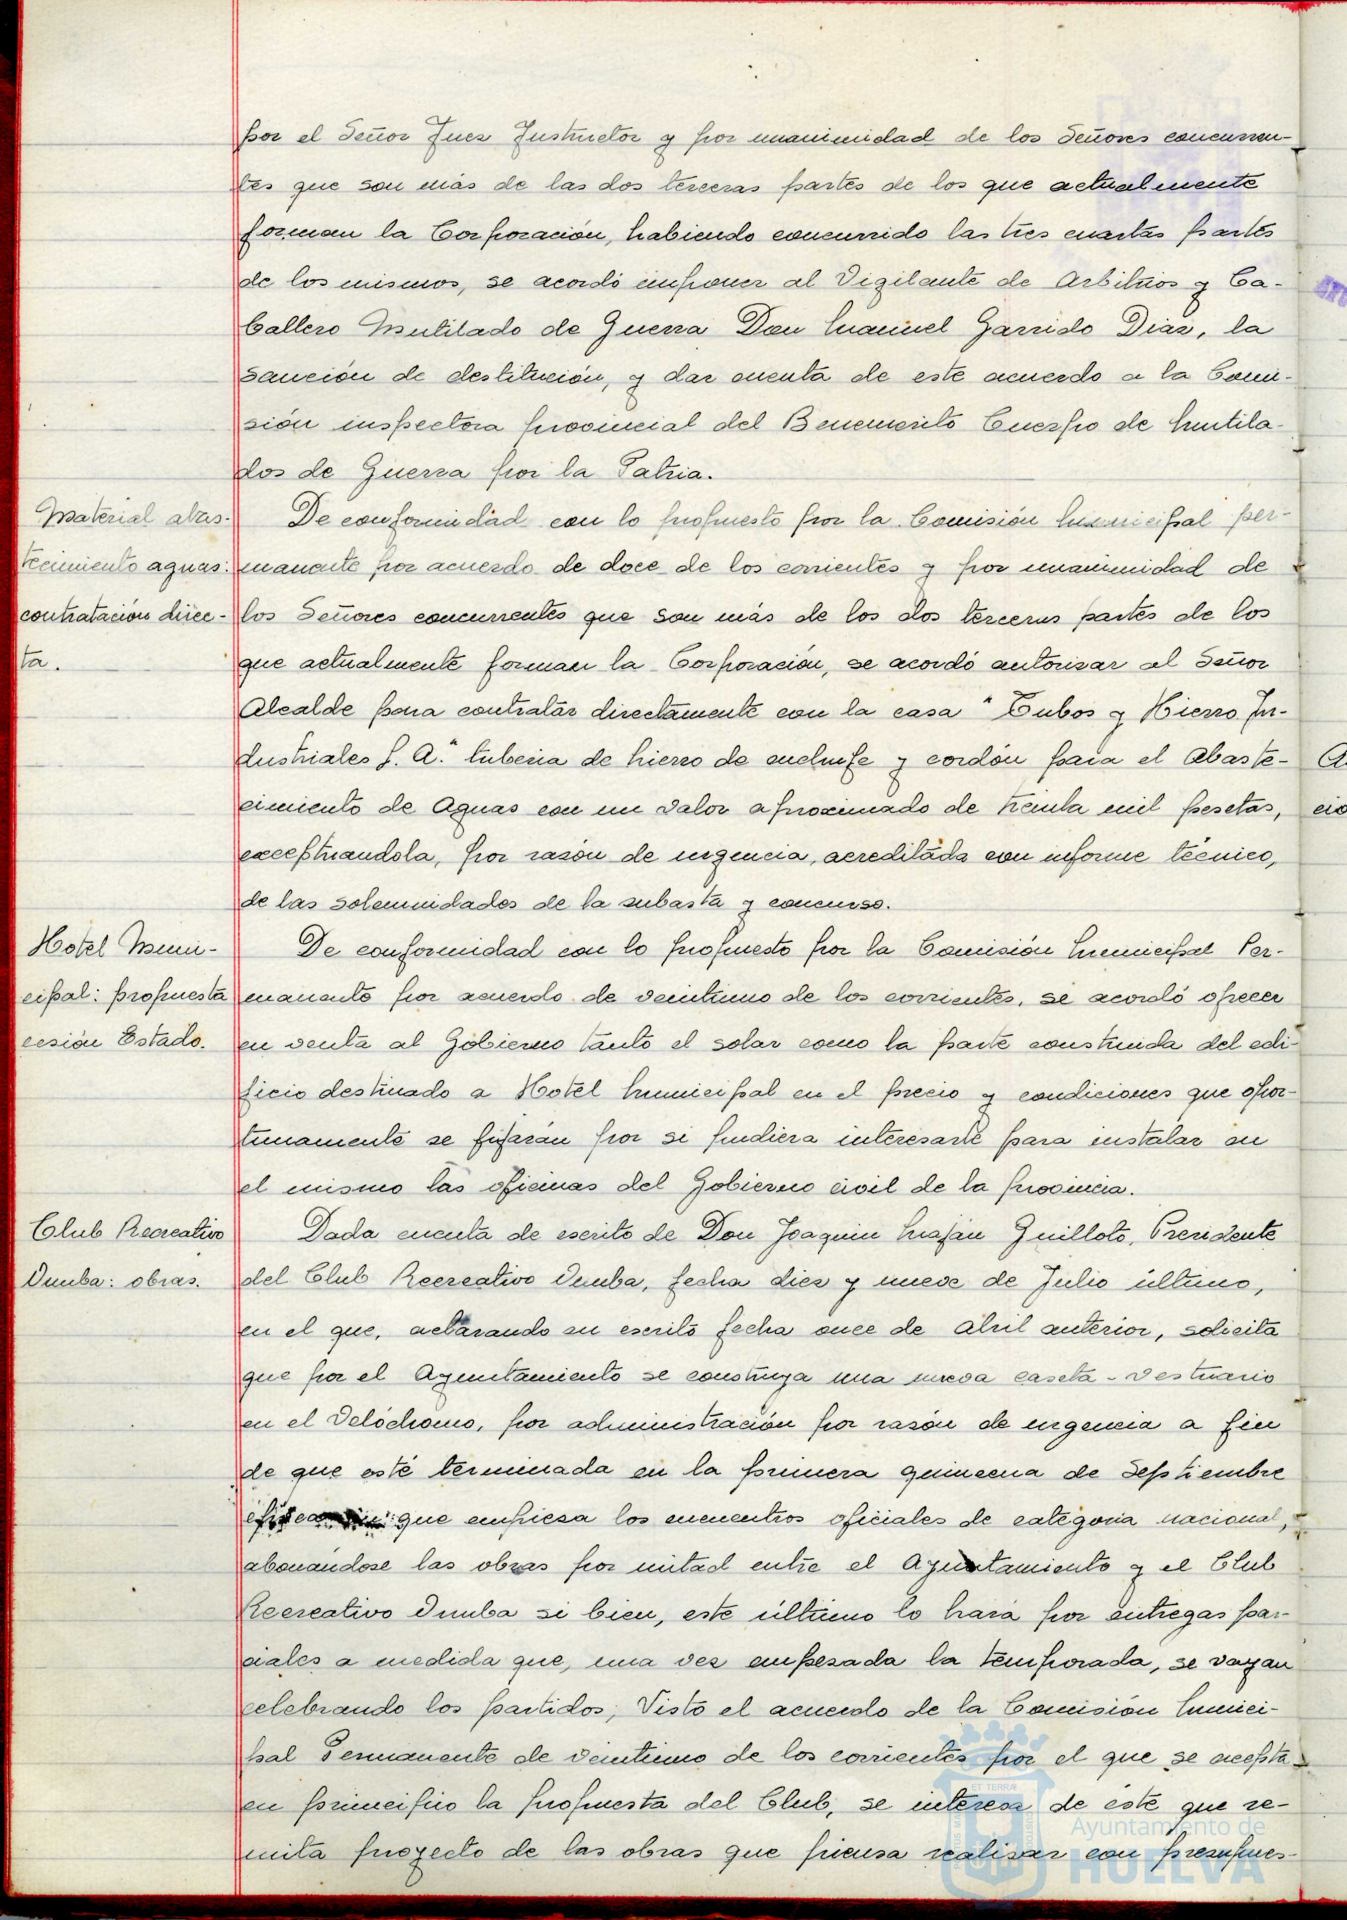 por el Señor Juez Instructor y por unanimidad de los Señores concurren-
tes que son más de las dos terceras partes de los que actualmente
forman la Corporación, habiendo concurrido las tres cuartas partes
de los mismos, se acordó imponer al Vigilante de Arbitrios y Ca-
ballero Mutilado de Guerra Don Manuel Garrido Diaz, la
sanción de destitución, y dar cuenta de este acuerdo a la Comi-
sión inspectora provincial del Benemerito Cuerpo de Mutila-
dos de Guerra por la Patria.
Material abas-
tecimiento aguas:
contratación direc-
ta.
De conformidad con lo propuesto por la Comisión Municipal per-
manente por acuerdo de doce de los corrientes y por unanimidad de
los Señores concurrentes que son más de los dos terceras partes de los
que actualmente forman la Corporación, se acordó autorizar al Señor
Alcalde para contratar directamente con la casa "Tubos y Hierro In-
dustriales S. A." tuberia de hierro de enchufe y cordón para el Abaste-
cimiento de Aguas con un valor aproximado de treinta mil pesetas,
exceptuandola, por razón de urgencia, acreditada con informe técnico,
de las solemnidades de la subasta y concurso.
Hotel Muni-
cipal: propuesta
cesión Estado.
De conformidad con lo propuesto por la Comisión Municipal Per-
manente por acuerdo de veintiuno de los corrientes, se acordó ofrecer
en venta al Gobierno tanto el solar como la parte construida del edi-
ficio destinado a Hotel Municipal en el precio y condiciones que opor-
tunamente se fijarán por si pudiera interesarle para instalar en
el mismo las oficinas del Gobierno civil de la provincia.
Club Recreativo
Onuba: obras.
Dada cuenta de escrito de Don Joaquin Maján Guilloto, Presidente
del Club Recreativo Onuba, fecha diez y nueve de Julio último,
en el que, aclarando su escrito fecha once de Abril anterior, solicita
que por el Ayuntamiento se construya una nueva caseta-vestuario
en el Velódromo, por administración por razón de urgencia a fin
de que esté terminada en la primera quincena de Septiembre
que empieza los encuentros oficiales de categoria nacional,
abonandose las obras por mitad entre el Ayuntamiento y el Club
Recreativo Onuba si bien, este último lo hará por entregas par-
ciales a medida que, una vez empezada la temporada, se vayan
celebrando los partidos; Visto el acuerdo de la Comisión Munici-
pal Permanente de veintiuno de los corrientes por el que se acepta
en principio la propuesta del Club, se interesa de éste que re-
mita proyecto de las obras que piensa realizar con presupues-
Ayuntamiento de
HUELVA